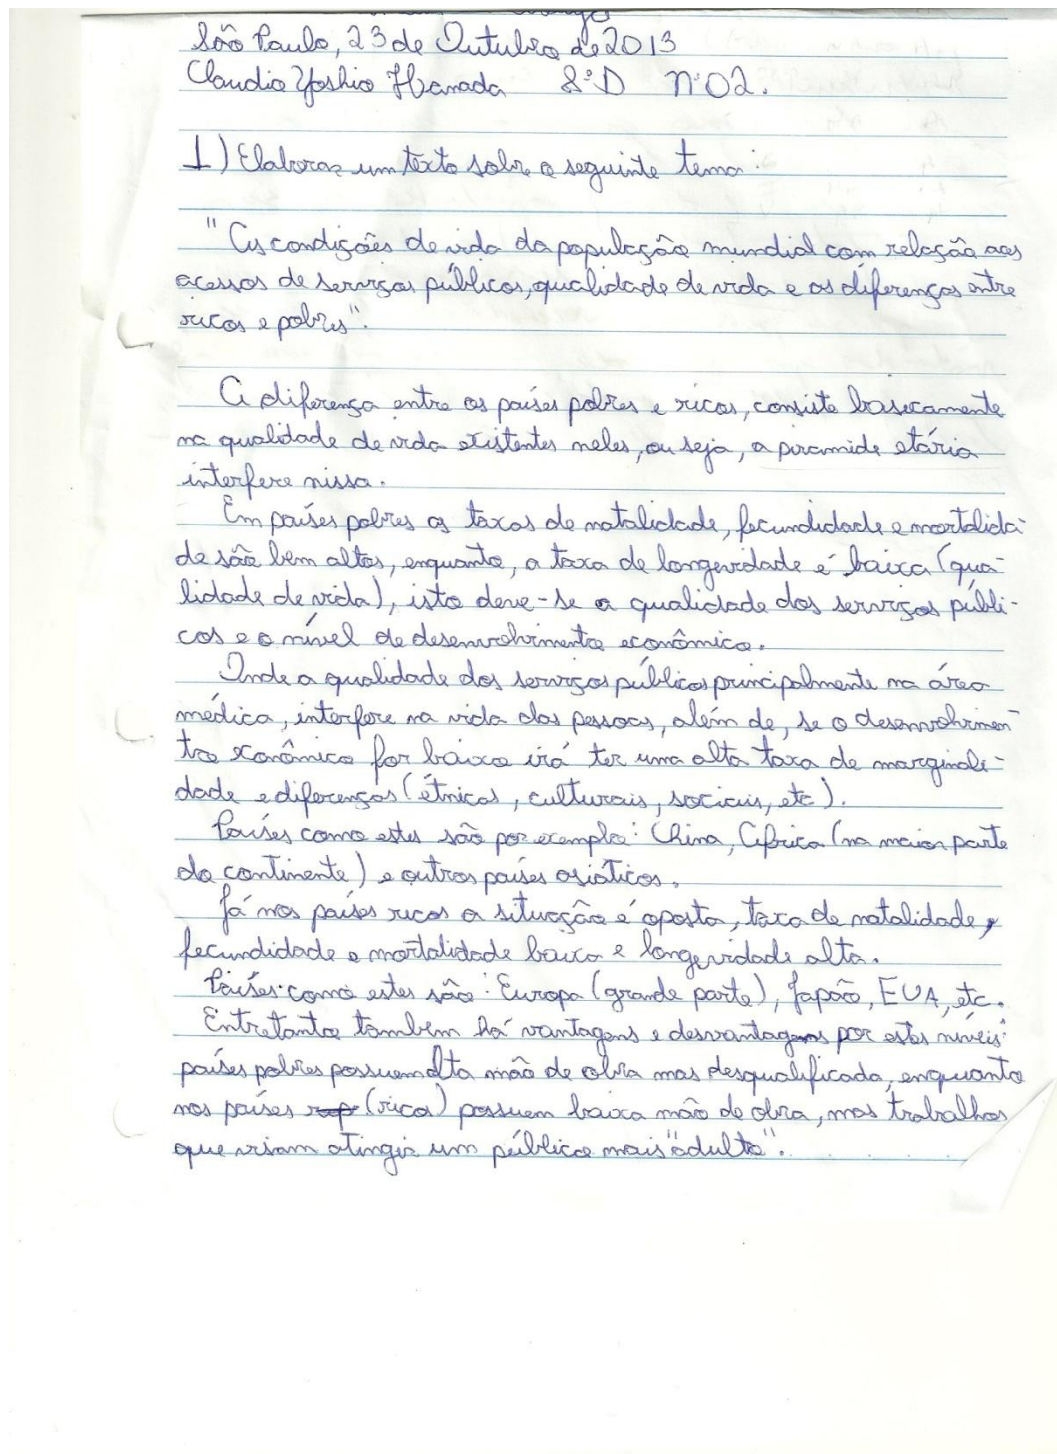 São Paulo, 23 de Outubro de 2013
Claudio Yoshio Hanada 8ºD Nº02.
1) Elaborar um texto sobre o seguinte tema:
"As condições de vida da população mundial com relação aos
acessos de serviços públicos, qualidade de vida e as diferenças entre
ricos e pobres".
A diferença entre os países pobres e ricos, consiste basicamente
na qualidade de vida existentes neles, ou seja, a piramide etária
interfere nissa.
Em países pobres as taxas de natalidade, fecundidade e mortalida-
de são bem altas, enquanto, a taxa de longevidade é baixa (qua-
lidade de vida), isto deve-se a qualidade dos serviços públi-
cos e o nível de desenvolvimento econômico.
Onde a qualidade dos serviços públicos principalmente na área
médica, interfere na vida das pessoas, além de, se o desenvolvimen-
to econômico for baixo irá ter uma alta taxa de marginali-
dade e diferenças (étnicas, culturais, sociais, etc).
Países como estes são por exemplo: China, África (na maior parte
do continente) e outros países asiáticos.
Já nos países ricos a situação é oposta, taxa de natalidade,
fecundidade e mortalidade baixa e longevidade alta.
Países como estes são: Europa (grande parte), Japão, EUA, etc.
Entretanto também há vantagens e desvantagens por estes níveis:
países pobres possuem alta mão de obra mas desqualificada, enquanto
nos países (ricos) possuem baixa mão de obra, mas trabalhos
que visam atingir um público mais "adulto".